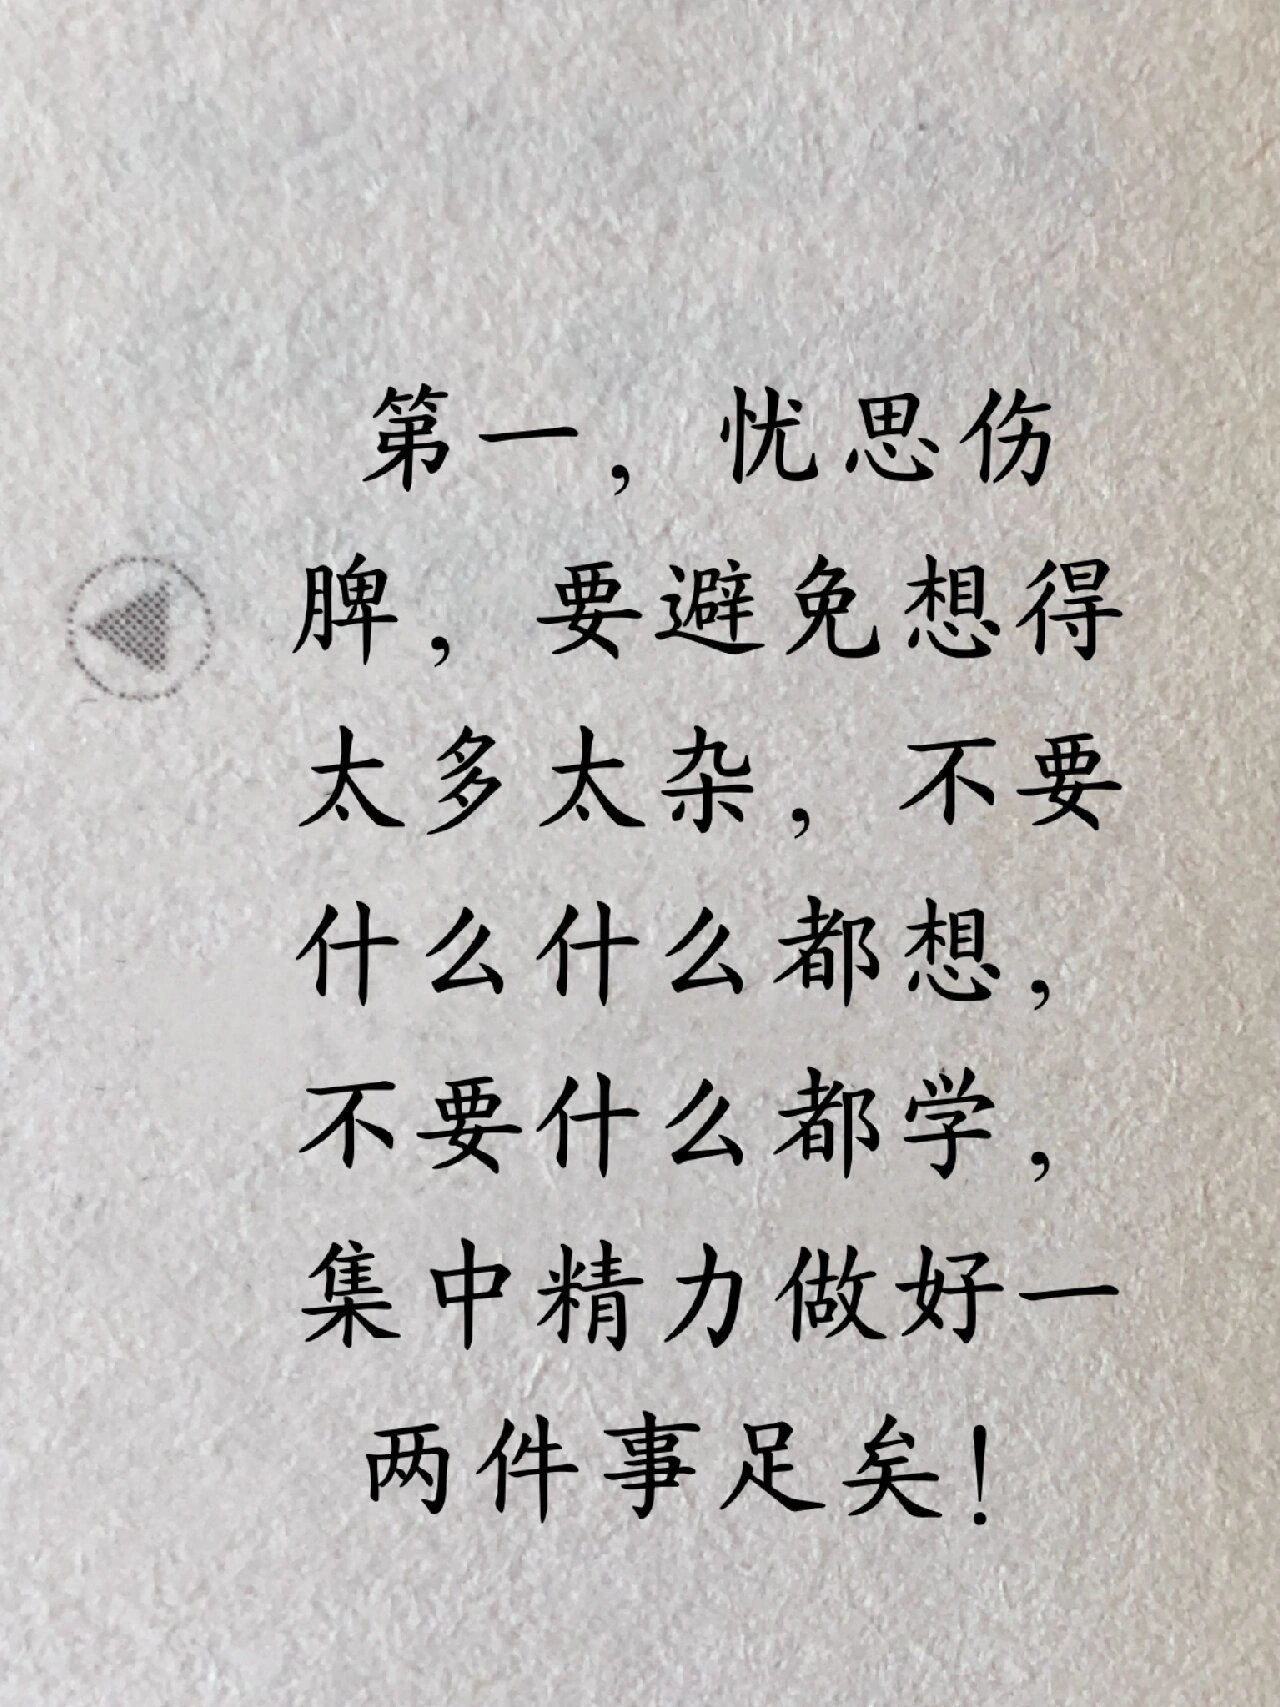 第一，忧思伤
脾，要避免想得
太多太杂，不要
什么什么都想，
不要什么都学，
集中精力做好一
两件事足矣！